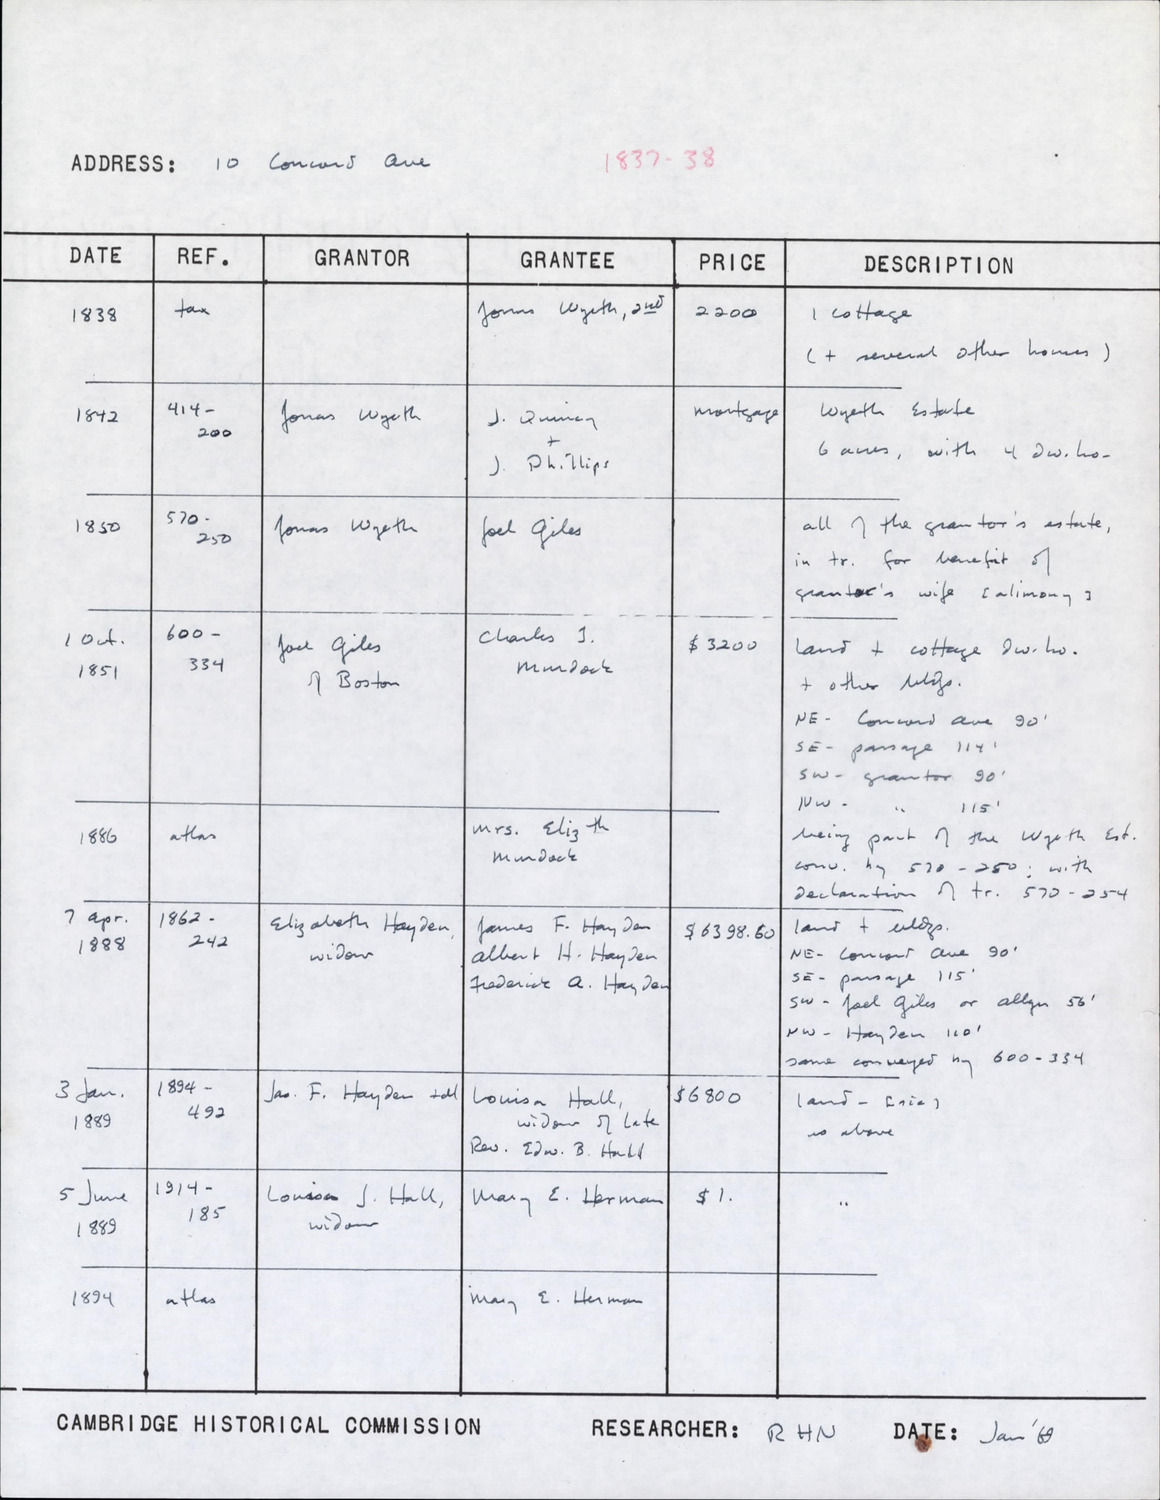 ADDRESS: 10 Concord Ave 1837-38
DATE REF. GRANTOR GRANTEE PRICE DESCRIPTION
1838 tax Jonas Wyeth, 2nd 2200 1 cottage
(+ several other houses)
1842 414- Jonas Wyeth J. Quincy mortgage Wyeth Estate
200 + 6 acres, with 4 dw. ho-
J. Phillips
1850 570- Jonas Wyeth Joel Giles all of the grantor's estate,
250 in tr. for benefit of
grantor's wife [alimony]
1 Oct. 600- Joel Giles Charles J. $3200 land + cottage dw. ho.
1851 334 of Boston Murdock + other bldgs.
NE- Concord Ave 90'
SE- passage 114'
SW- grantor 90'
NW- " 115'
1886 atlas Mrs. Elizth being part of the Wyeth Est.
Murdock conv. by 570-250; with
declaration of tr. 570-254
7 Apr. 1862- Elizabeth Hayden, James F. Hayden $6398.60 land + bldgs.
1888 242 widow Albert H. Hayden NE- Concord Ave 90'
Frederick A. Hayden SE- passage 115'
SW- Joel Giles or 56'
NW- Hayden 110'
same conveyed by 600-334
3 Jan. 1894- Jas. F. Hayden etal Louisa Hall, $6800 land- [sic]
1889 492 widow of late as above
Rev. Edw. B. Hall
5 June 1914- Louisa J. Hall, Mary E. Herman $1. "
1889 185 widow
1894 atlas Mary E. Herman
CAMBRIDGE HISTORICAL COMMISSION RESEARCHER: RHN DATE: Jan '68